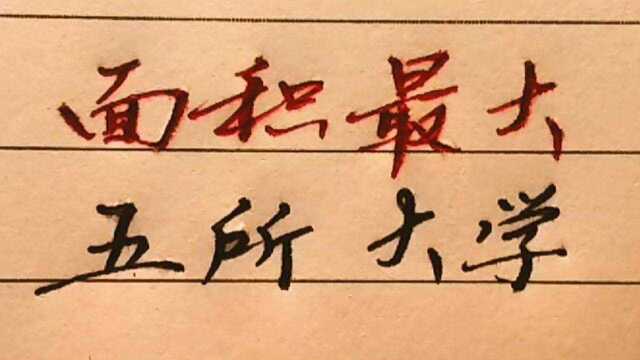 面积最大
五所大学